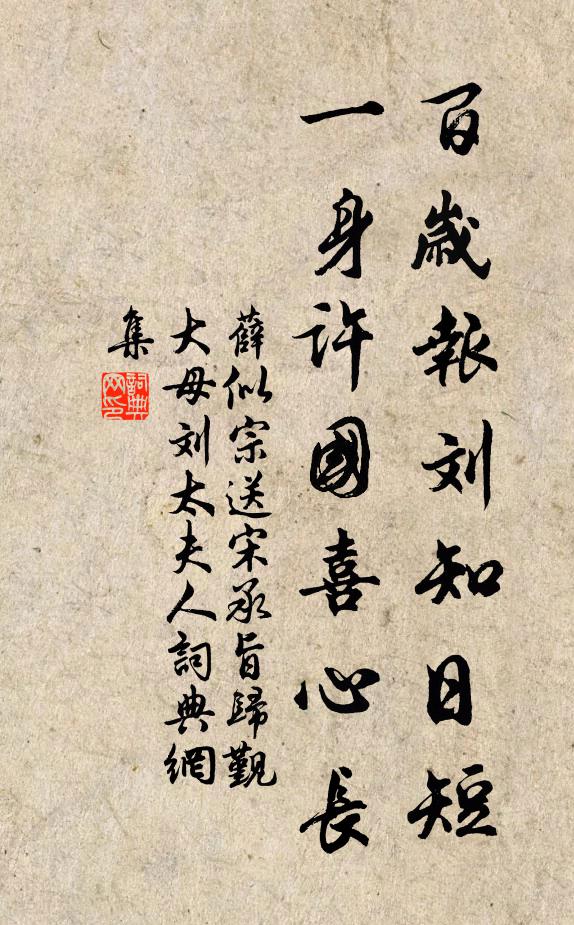 百歲報刘知日短
一身許國喜心長
薛似宗送宋承旨歸觐
大母刘太夫人詞典網
集
詞典
网印